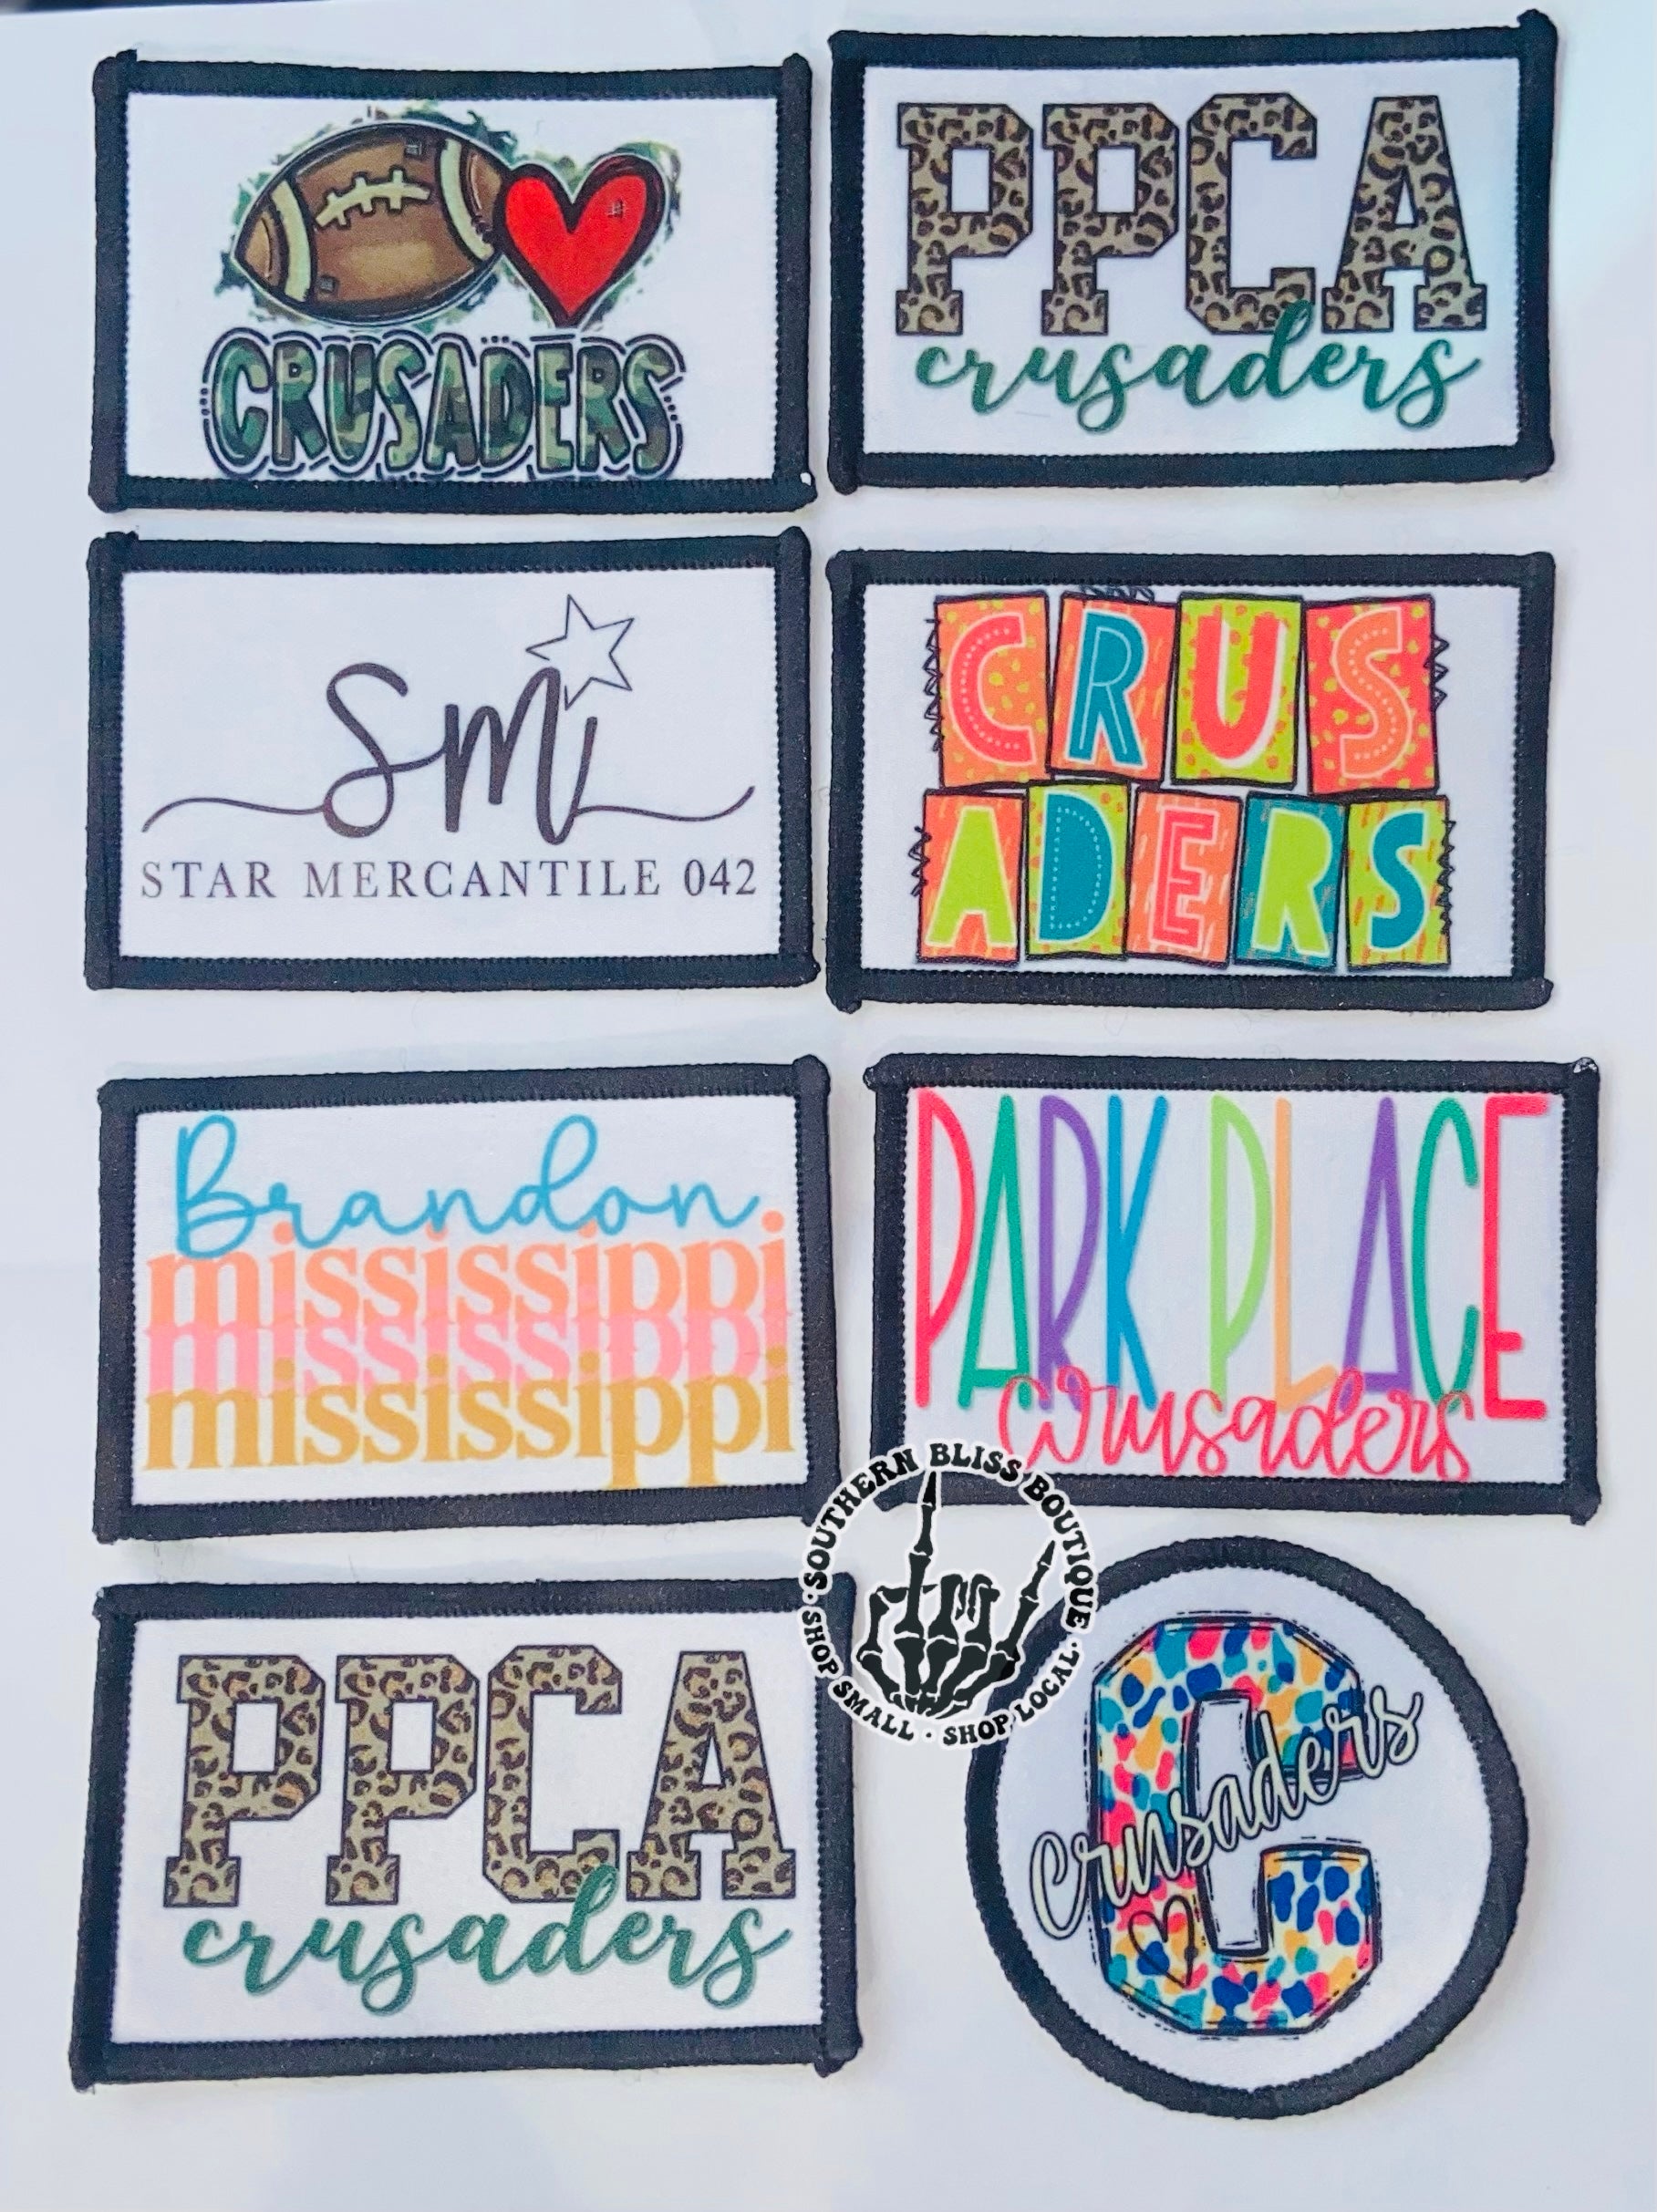 CRUSADERS
PPCA
crusaders
sm
STAR MERCANTILE 042
CRUS
ADERS
Brandon
mississippi
mississippi
mississippi
PARK PLACE
Crusaders
SOUTHERN BLISS BOUTIQUE
SHOP SMALL · SHOP LOCAL
PPCA
crusaders
C
Crusaders